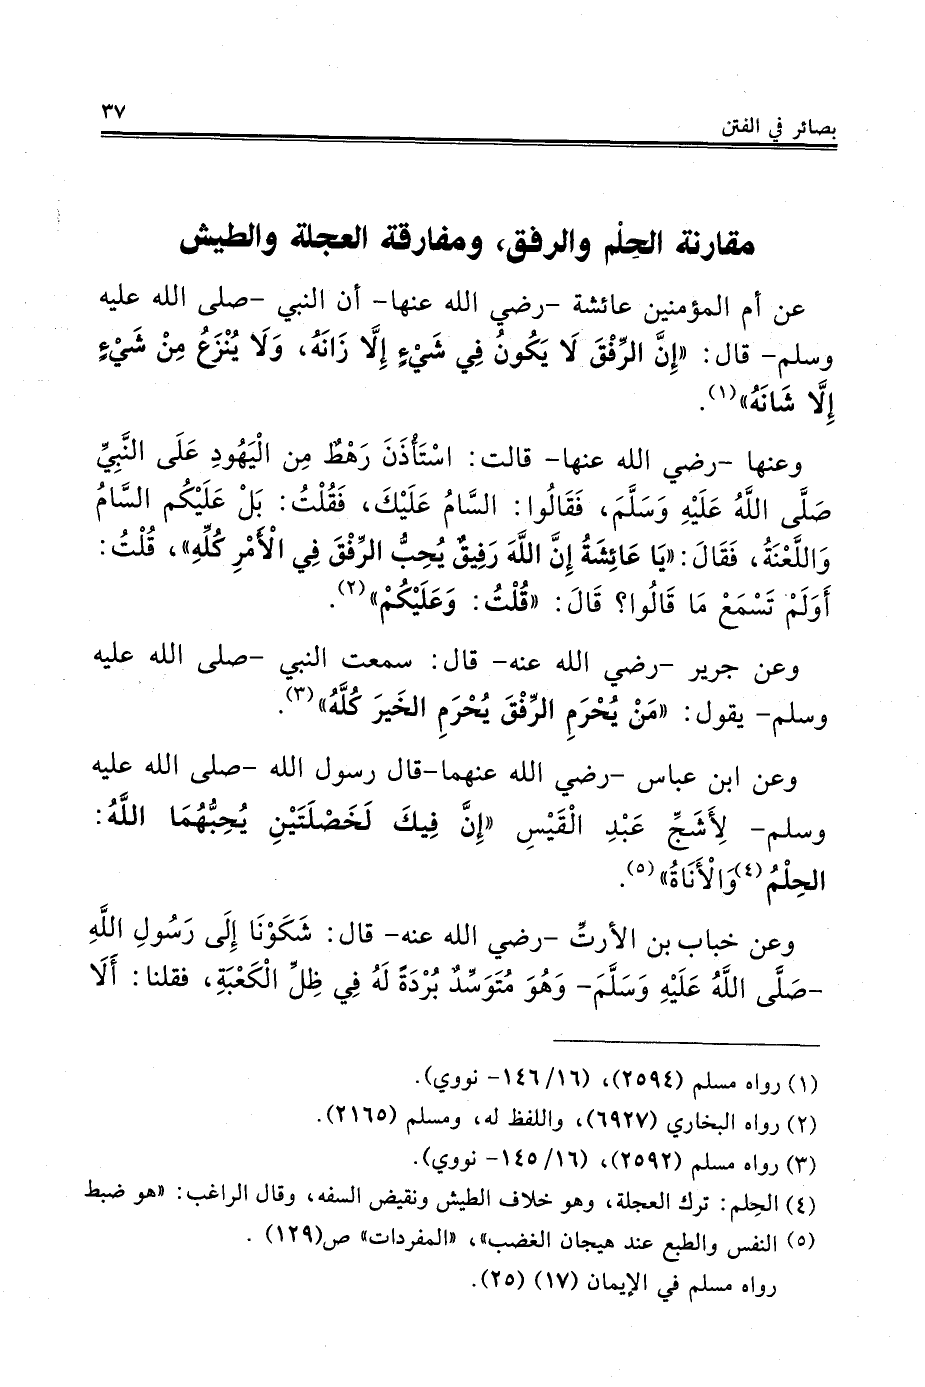 بصائر في الفتن
٣٧
مقارنة الحِلْم والرفق، ومفارقة العجلة والطيش
عن أم المؤمنين عائشة –رضي الله عنها– أن النبي –صلى الله عليه
وسلم– قال: «إِنَّ الرِّفْقَ لَا يَكُونُ فِي شَيْءٍ إِلَّا زَانَهُ، وَلَا يُنْزَعُ مِنْ شَيْءٍ
إِلَّا شَانَهُ»(١).
وعنها –رضي الله عنها– قالت: اسْتَأْذَنَ رَهْطٌ مِن الْيَهُودِ عَلَى النَّبِيِّ
صَلَّى اللَّهُ عَلَيْهِ وَسَلَّمَ، فَقَالُوا: السَّامُ عَلَيْكَ، فَقُلْتُ: بَلْ عَلَيْكُم السَّامُ
وَاللَّعْنَةُ، فَقَالَ: «يَا عَائِشَةُ إِنَّ اللَّهَ رَفِيقٌ يُحِبُّ الرِّفْقَ فِي الْأَمْرِ كُلِّهِ»، قُلْتُ:
أَوَلَمْ تَسْمَعْ مَا قَالُوا؟ قَالَ: «قُلْتُ: وَعَلَيْكُمْ»(٢).
وعن جرير –رضي الله عنه– قال: سمعت النبي –صلى الله عليه
وسلم– يقول: «مَنْ يُحْرَمِ الرِّفْقَ يُحْرَمِ الخَيرَ كُلَّهُ»(٣).
وعن ابن عباس –رضي الله عنهما–قال رسول الله –صلى الله عليه
وسلم– لِأَشَجِّ عَبْدِ الْقَيْسِ «إِنَّ فِيكَ لَخَصْلَتَيْنِ يُحِبُّهُمَا اللَّهُ:
الحِلْمُ(٤)وَالْأَنَاةُ»(٥).
وعن خباب بن الأرتِّ –رضي الله عنه– قال: شَكَوْنَا إِلَى رَسُولِ اللَّهِ
–صَلَّى اللَّهُ عَلَيْهِ وَسَلَّمَ– وَهُوَ مُتَوَسِّدٌ بُرْدَةً لَهُ فِي ظِلِّ الْكَعْبَةِ، فقلنا: أَلَا
(١) رواه مسلم (٢٥٩٤)، (١٤٦/١٦– نووي).
(٢) رواه البخاري (٦٩٢٧)، واللفظ له، ومسلم (٢١٦٥).
(٣) رواه مسلم (٢٥٩٢)، (١٤٥/١٦– نووي).
(٤) الحِلم: ترك العجلة، وهو خلاف الطيش ونقيض السفه، وقال الراغب: «هو ضبط
(٥) النفس والطبع عند هيجان الغضب»، «المفردات» ص(١٢٩) .
رواه مسلم في الإيمان (١٧) (٢٥).